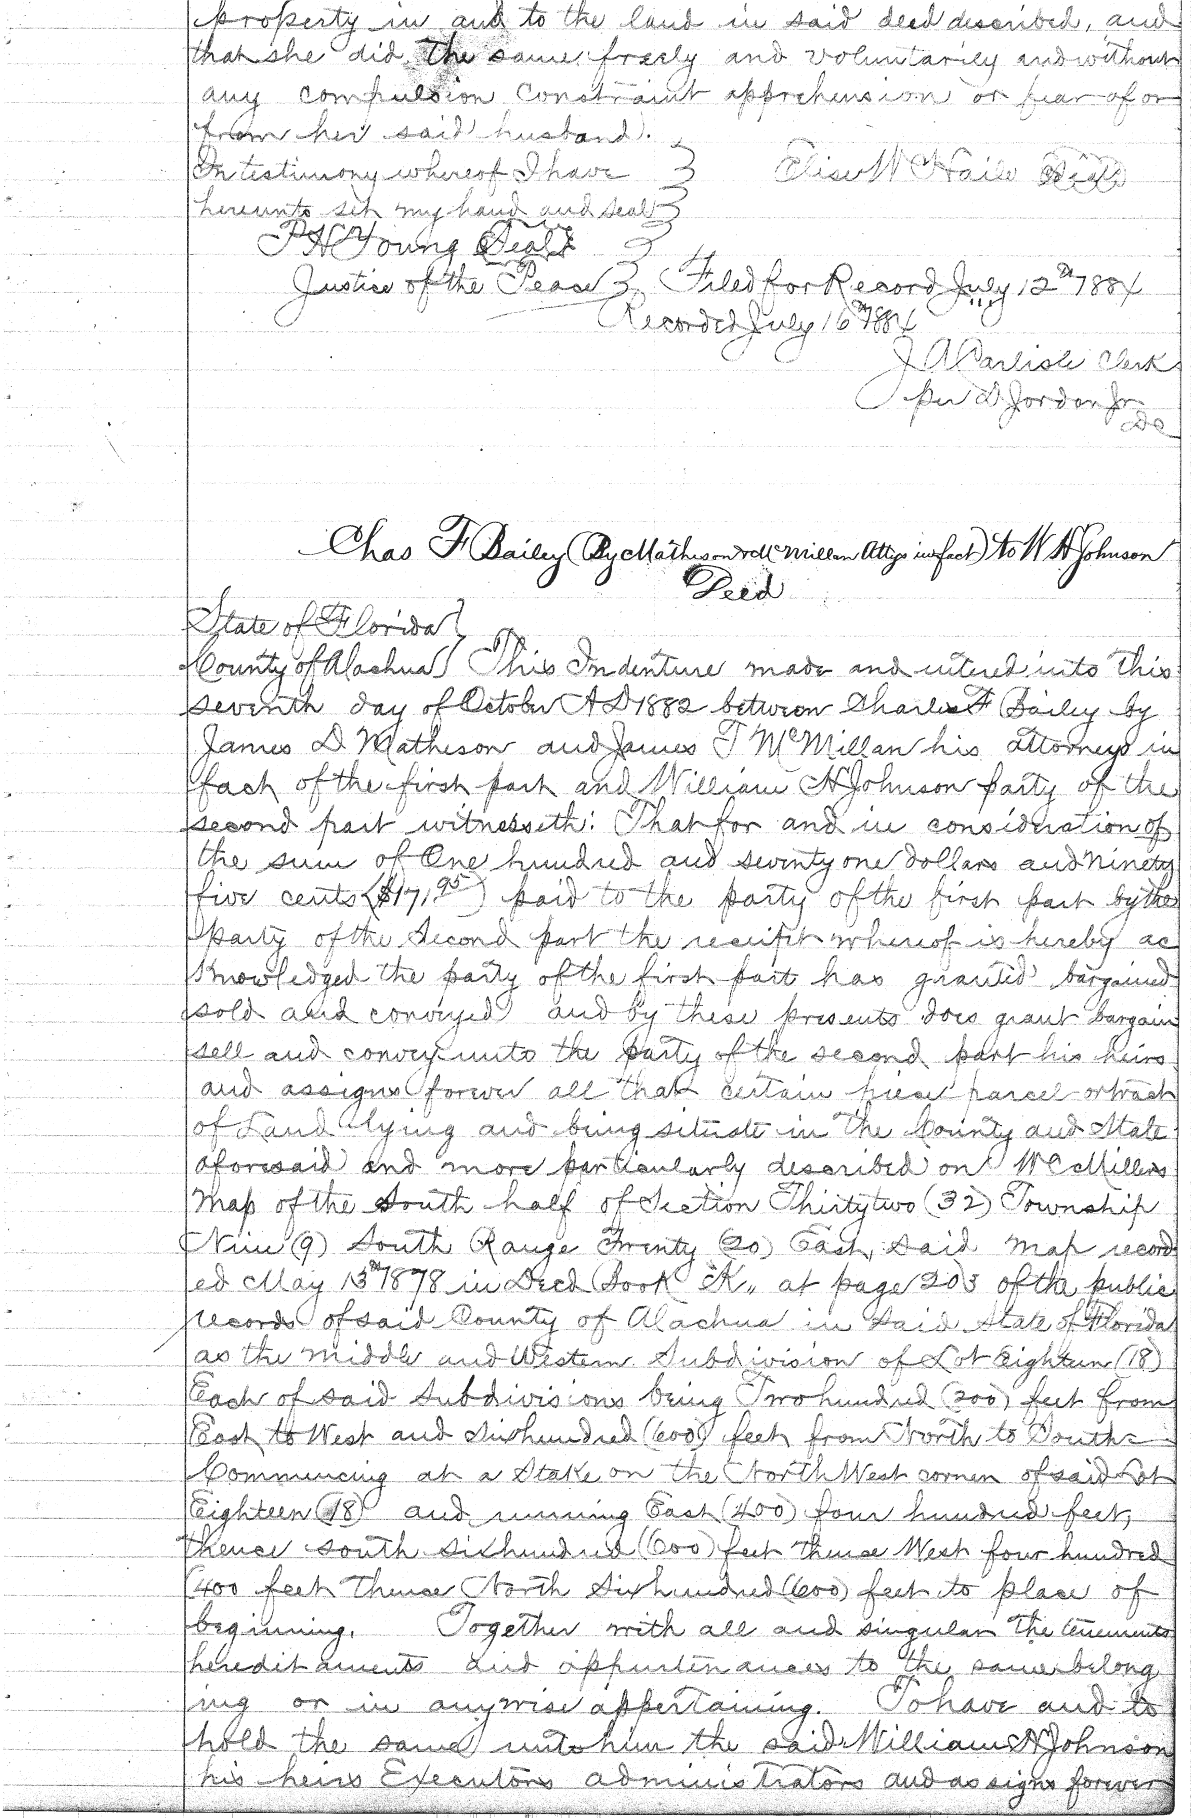 property in and to the land in said deed described, and
that she did the same freely and voluntarily and without
any compulsion constraint apprehension or fear of or
from her said husband.
In testimony whereof I have
hereunto set my hand and seal
Elise W Haile Seal
P H Young Seal
Justice of the Peace
Filed for Record July 12th 1884
Recorded July 16th 1884
J A Carlisle Clerk
per D Jordan Jr
DC
Chas F Bailey (By Matheson & McMillan Attys in fact) to W H Johnson
Deed
State of Florida
County of Alachua This Indenture made and entered into this
seventh day of October A D 1882 between Charles F Bailey by
James D Matheson and James T McMillan his attorneys in
fact of the first part and William H Johnson party of the
second part witnesseth: That for and in consideration of
the sum of One hundred and seventy one dollars and ninety
five cents ($171 95) paid to the party of the first part by the
party of the Second part the receipt whereof is hereby ac
knowledged the party of the first part has granted bargained
sold and conveyed and by these presents does grant bargain
sell and convey unto the party of the second part his heirs
and assigns forever all that certain piece parcel or tract
of Land lying and being situate in the County and State
aforesaid and more particularly described on W C Millers
Map of the South half of Section Thirty two (32) Township
Nine (9) South Range Twenty (20) East, said map record
ed May 13th 1878 in Deed Book "K" at page 203 of the public
records of said County of Alachua in said State of Florida
as the middle and Western Subdivision of Lot Eighteen (18)
Each of said Subdivisions being Two hundred (200) feet from
East to West and six hundred (600) feet from North to South=
Commencing at a Stake on the North West corner of said Lot
Eighteen (18) and running East (400) four hundred feet,
thence south six hundred (600) feet thence West four hundred
(400 feet Thence North Six hundred (600) feet to place of
beginning. Together with all and singular the tenements
hereditaments and appurtenances to the same belong
ing or in anywise appertaining. To have and to
hold the same unto him the said William H Johnson
his heirs Executors administrators and assigns forever